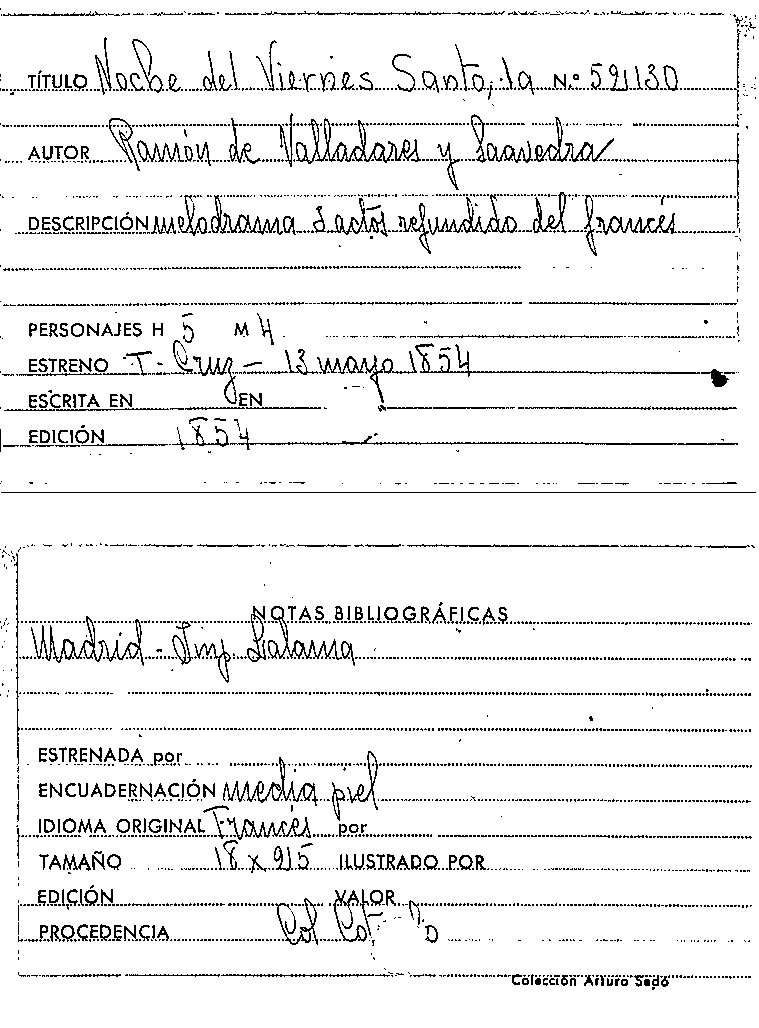 TÍTULO Noche del Viernes Santo, la N.º 591130
AUTOR Ramón de Valladares y Saavedra
DESCRIPCIÓN melodrama 3 actos refundido del francés
PERSONAJES H 5 M 4
ESTRENO T. Cruz - 13 mayo 1854
ESCRITA EN EN
EDICIÓN 1854
NOTAS BIBLIOGRÁFICAS
Madrid - Imp. Lalama
ESTRENADA por
ENCUADERNACIÓN media piel
IDIOMA ORIGINAL Francés por
TAMAÑO 18 x 9'5 ILUSTRADO POR
EDICIÓN VALOR
PROCEDENCIA Col
Colección Arturo Sedó